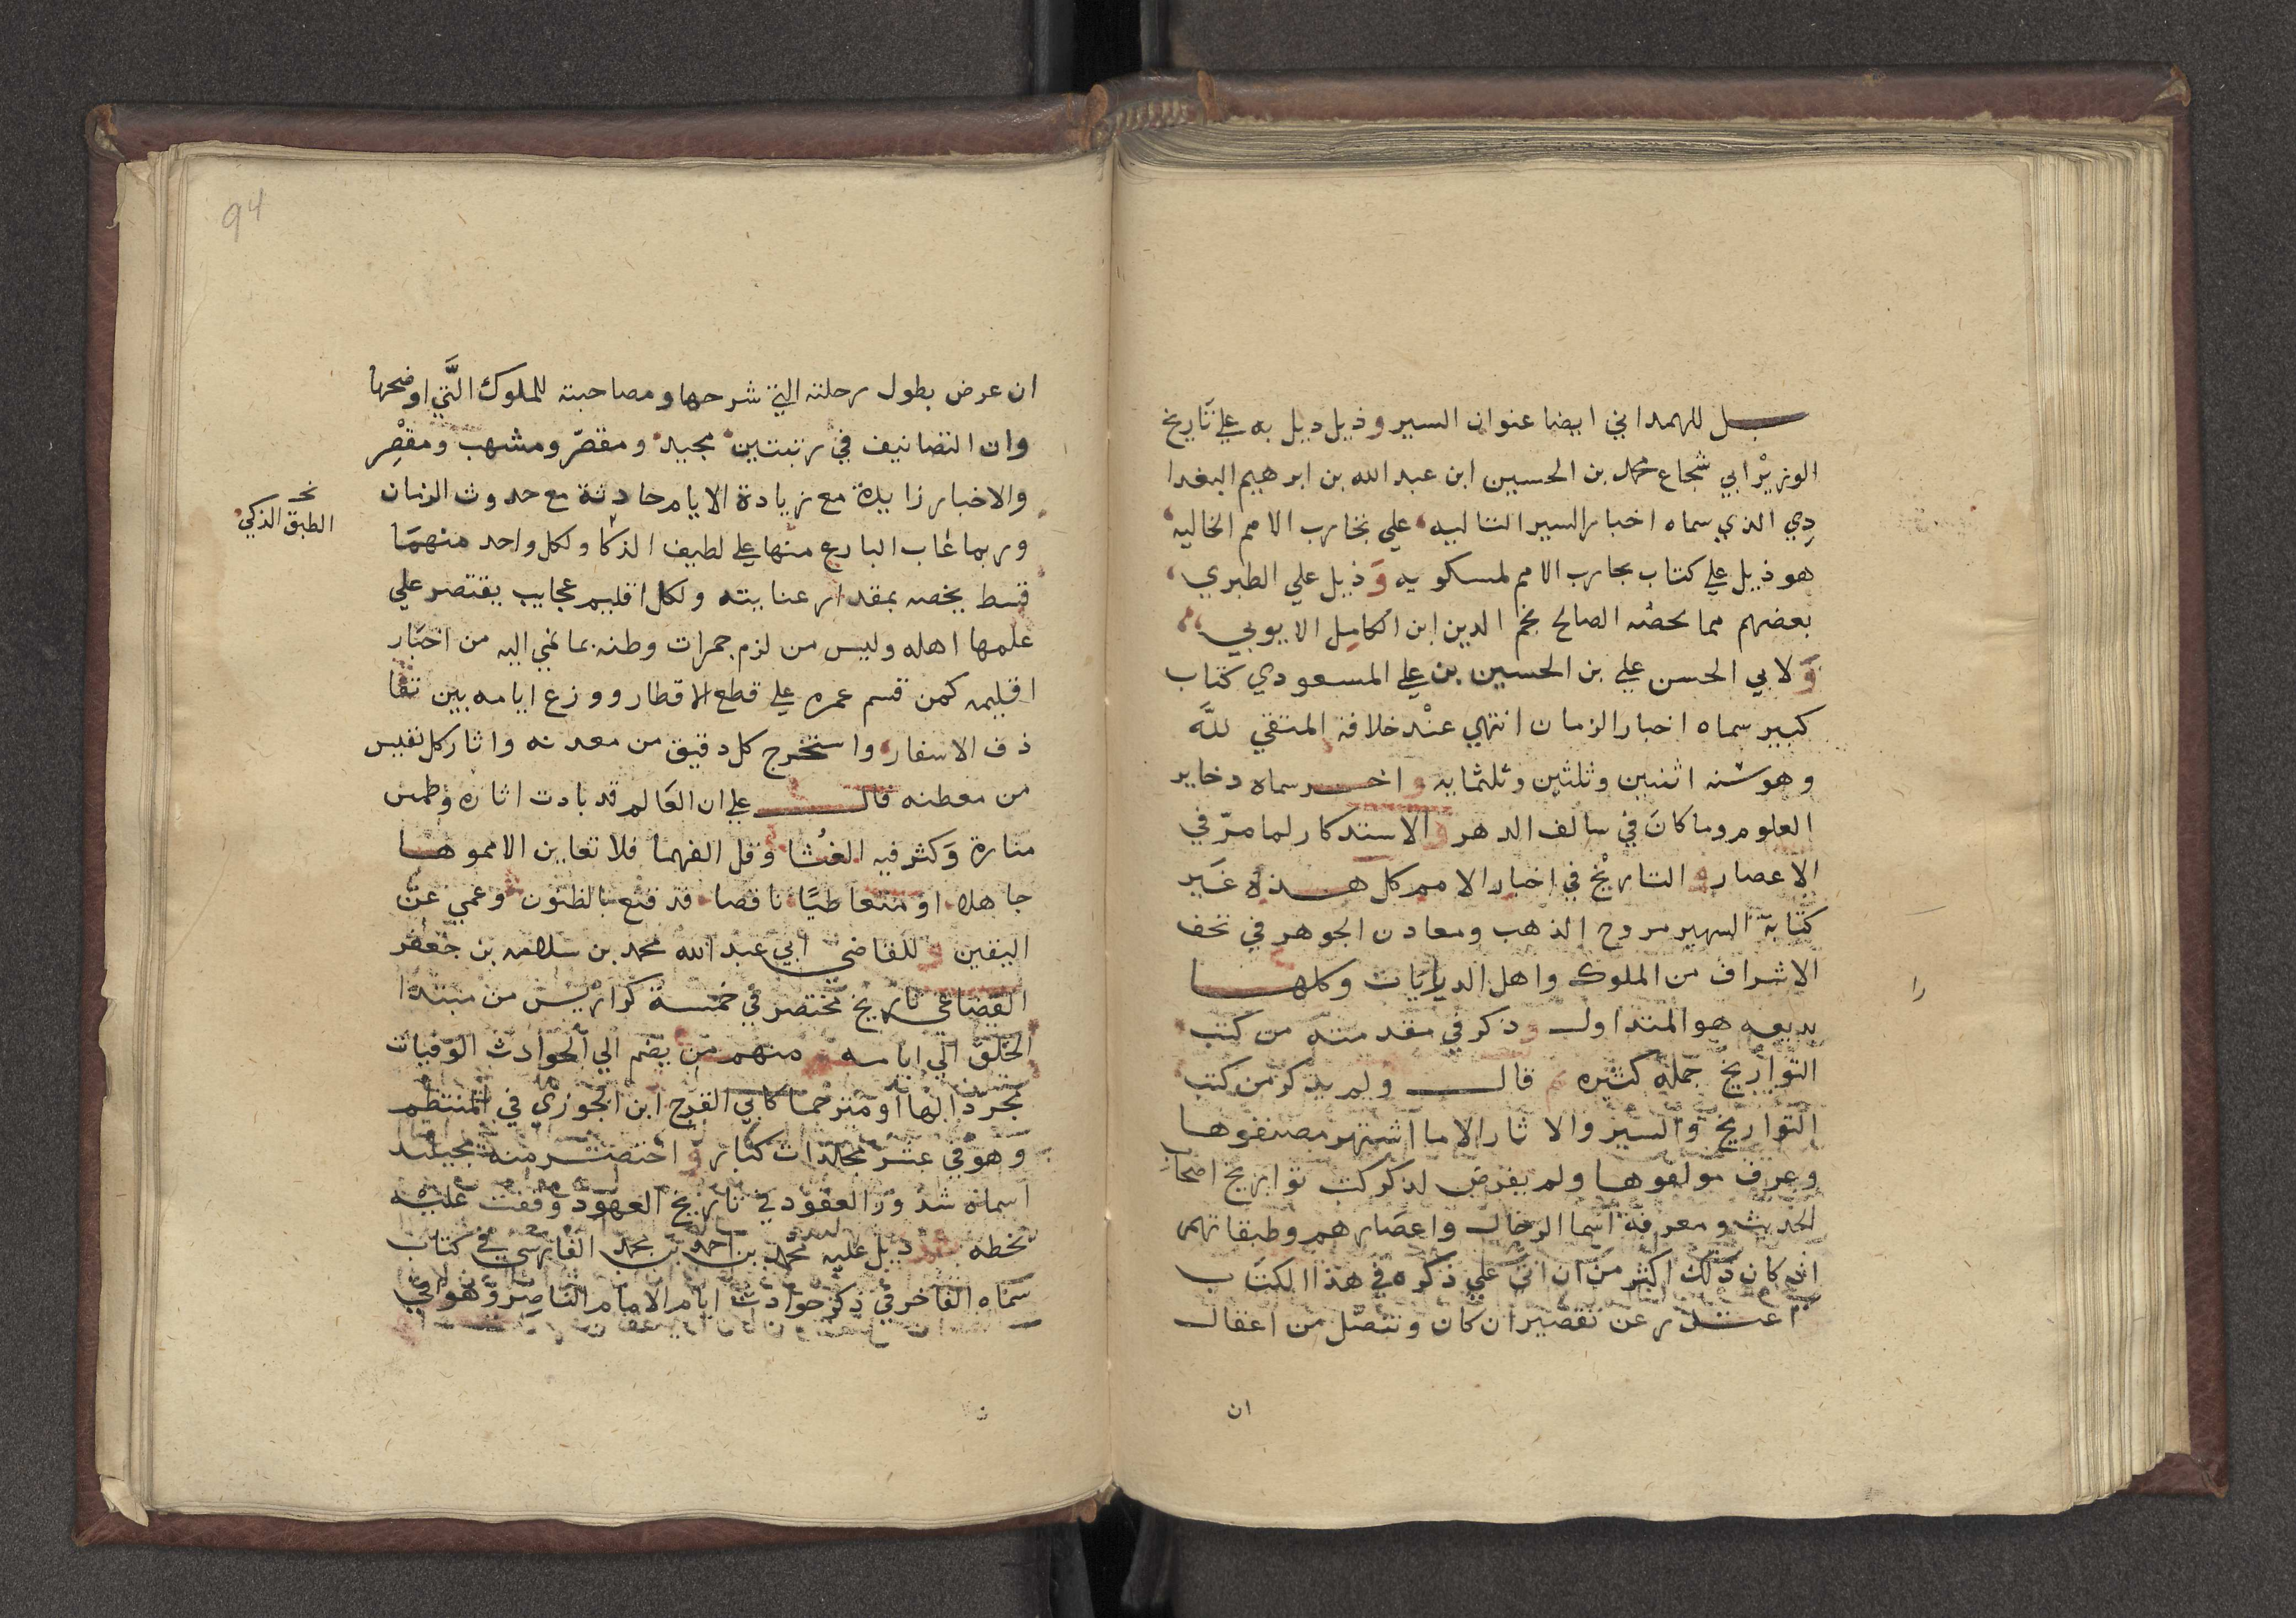 بل للهمداني ايضا عنوان السير وذيل ذيل به علي تاريخ
الوزير ابي شجاع محمد بن الحسين ابن عبد الله بن ابرهيم البغدا
دي الذي سماه اخبار السير التاليه علي تجارب الامم الخاليه
هو ذيل علي كتاب تجارب الامم لمسكويه وذيل علي الطبري
بعضهم مما لحصه الصالح نجم الدين ابن الكامل الايوبي
ولابي الحسن علي بن الحسين بن علي المسعودي كتاب
كبير سماه اخبار الزمان انتهي عند خلافة المتقي لله
وهو سنه اثنين وثلثين وثلثمايه واخر سماه دخاير
العلوم وما كان في سالف الدهر والاستدكار لما مر في
الاعصار والتاريخ في اخبار الامم كل هذه غير
كتابة السهير مروج الذهب ومعادن الجوهر في تحف
الاشراف من الملوك واهل الديايات وكلها
بديعه هو المتداول وذكر في مقدمته من كتب
التواريخ جمله كثيره قال ولم يذكر من كتب
التواريخ والسير والاثار الا ما اشتهر مصنفوها
وعرف مولفوها ولم يفرض لدكر كتب تواريخ اصحاب
الحديث ومعرفة اسما الرجال واعصارهم وطبقاتهم
اذ كان ذلك اكثر من ان اتي علي ذكره في هذا الكتاب
اعتذر عن تقصير ان كان وتنصل من اغفال
ان
94
ان عرض بطول رحلته التي شرحها ومصاحبته للملوك التي اوضحها
وان التصانيف في رتبتين مجيد ومقصر ومشهب ومقصر
والاخبار زايدة مع زيادة الايام حادثة مع حدوث الزمان
وربما غاب البارع منها علي لطيف الذكا ولكل واحد منهما
الطبق الذكي
قسط يخصه بمقدار عنايته ولكل اقليم عجايب يقتصر علي
علمها اهله وليس من لزم جمرات وطنه بما نمي اليه من اخبار
اقليمه كمن قسم عمره علي قطع الاقطار ووزع ايامه بين تقا
ذف الاسفار واستخرج كل دقيق من معدنه واثار كل نفيس
من معطنه قال علي ان العالم قد بادت اثاره وطمس
مناره وكثر فيه الغثا وقل الفهما فلا تعاين الا مموها
جاهلا او متعاطيا ناقصا قد قنع بالظنون وعمي عن
اليقين وللقاضي ابي عبد الله محمد بن سلامه بن جعفر
القضاعي تاريخ مختصر في خمسة كراريس من مبتدا
الخلق الي ايامه منهم من يضم الي الحوادث الوفيات
مجردا لها او مترجما كابي الفرج ابن الجوزي في المنتظم
وهو في عشر مجلدات كبار واختصر منه مجيلد
اسماه شذور العقود في تاريخ العهود وقفت عليه
بخطه ذيل عليه محمد بن احمد بن محمد الفارسي في كتاب
سماه الفاخر في ذكر حوادث ايام الامام الناصر وهو في